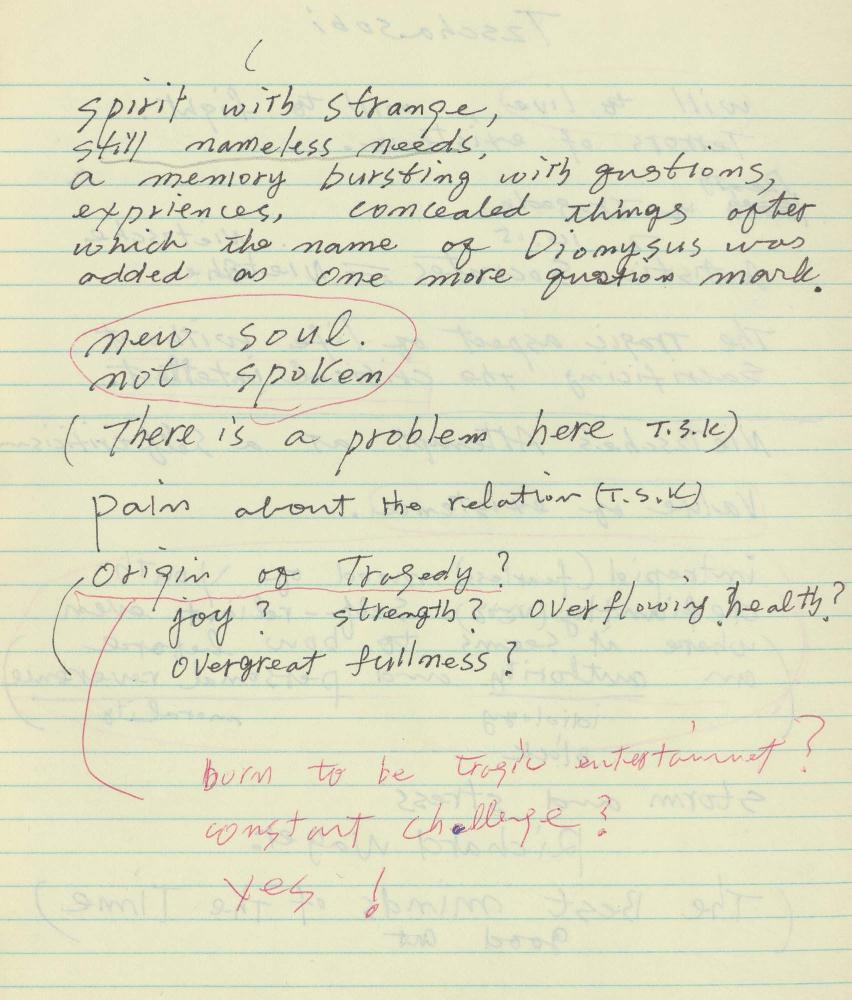 (
spirit with strange,
still nameless needs,
a memory bursting with qustions,
expriences, concealed things after
which the name of Dionysus was
added as one more question mark.
new soul.
not spoken
(There is a problem here T.S.K)
pain about the relation (T.S.K)
Origin of Tragedy?
joy? strength? overflowing? health?
overgreat fullness?
burn to be tragic entertainmet?
constant challenge?
yes!